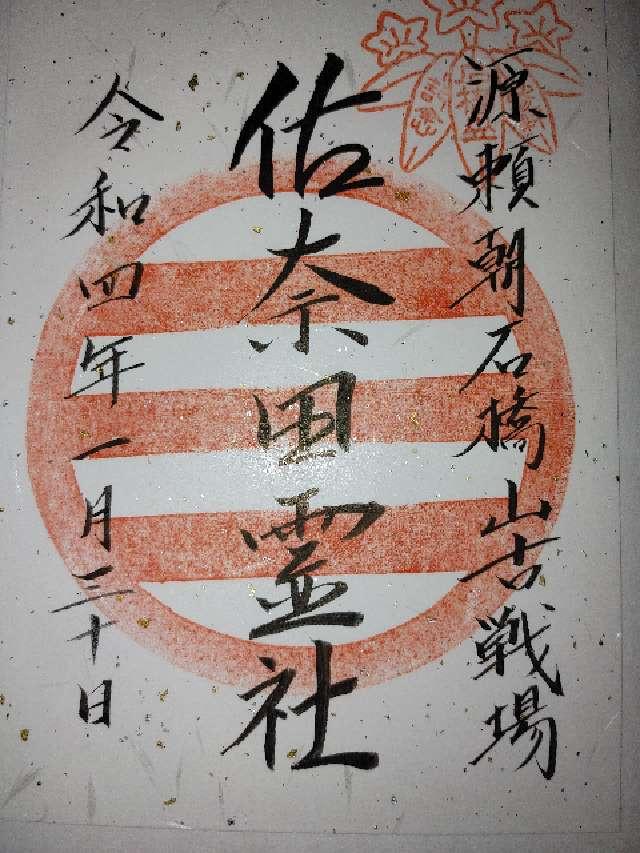 源頼朝石橋山古戦場
佐奈田霊社
令和四年一月三十日